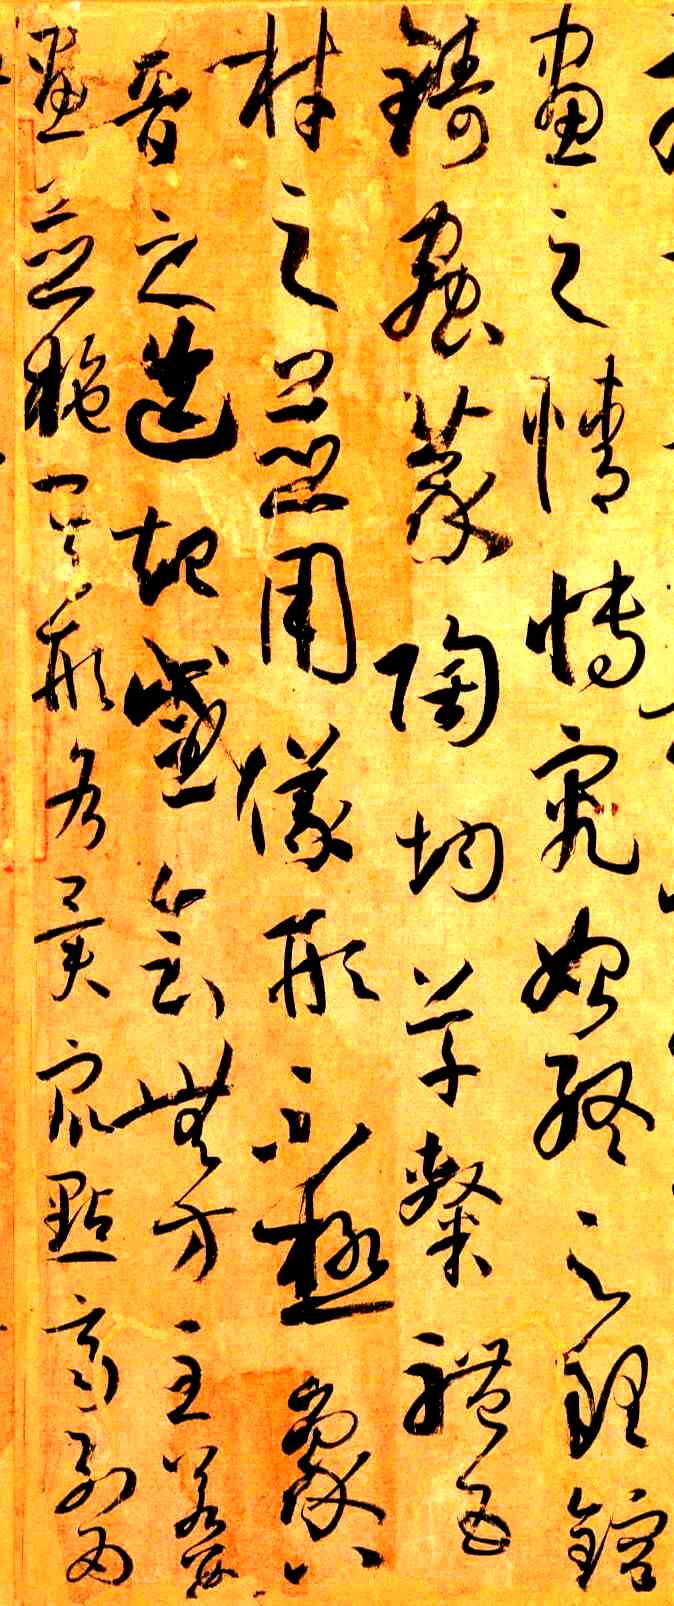 畫之情博究始終之理鎔
鑄蟲篆陶均草隸體五
材之並用儀形不極象八
音之迭起感會無方至若數
畫並施其形各異衆點齊列為